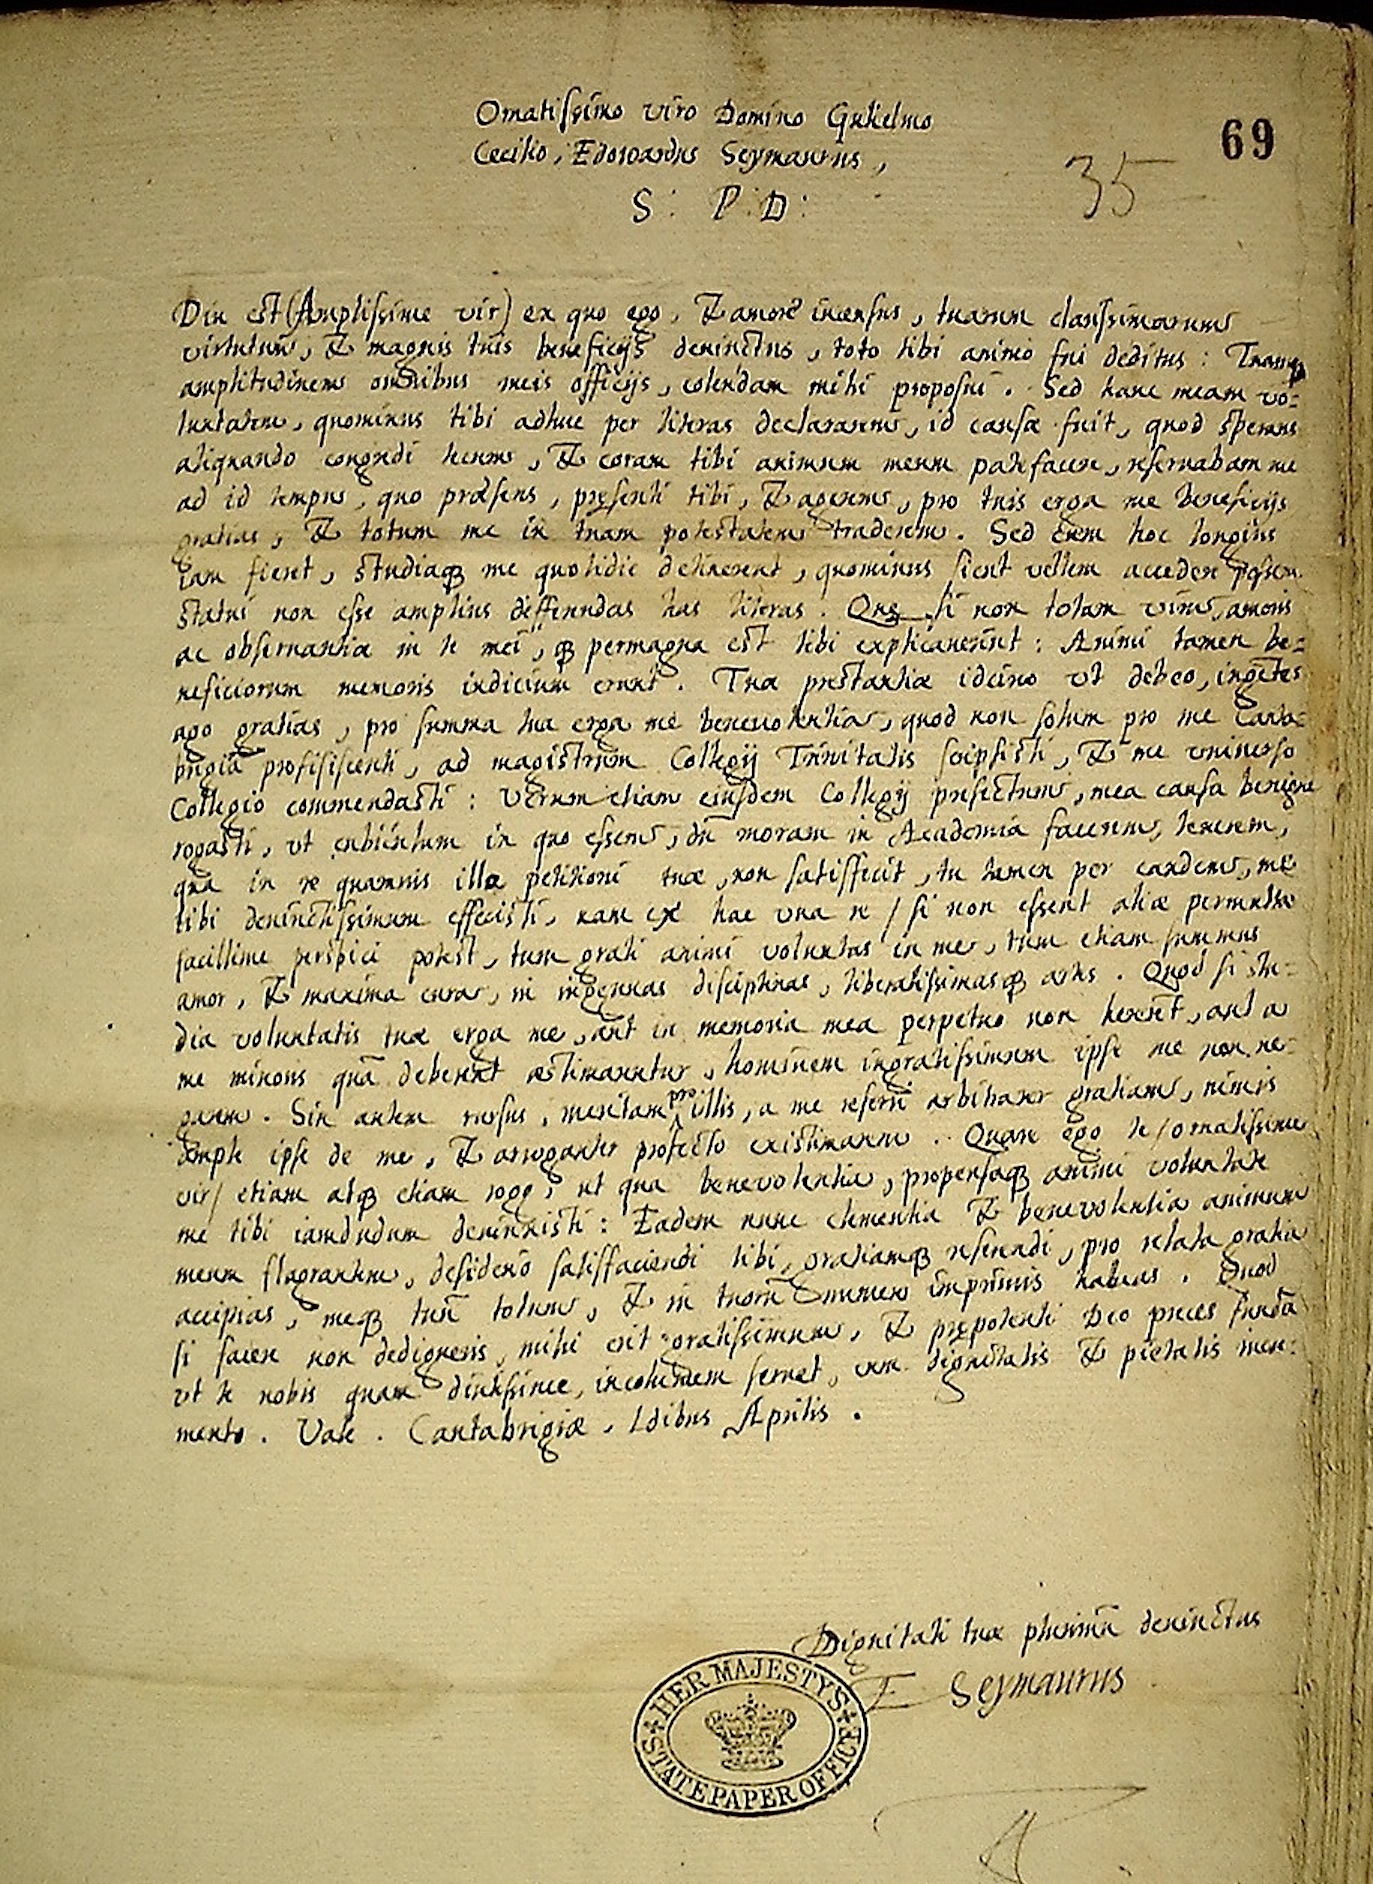 Ornatissimo viro Domino Gulielmo
Cecilio, Edowardus Seymaurus,
69
35
S: P: D:
Diu est (Amplissime vir) ex quo ego, & amore incensus, tuarum clarissimarum
virtutum, & magnis tuis beneficijs deuinctus, toto tibi animo fui deditus: Tuamq
amplitudinem omnibus meis officijs, colendam mihi proposui. Sed hanc meam vo=
luntatem, quominus tibi adhuc per literas declararem, id causæ fuit, quod sperans
aliquando congredi tecum, & coram tibi animum meum patefacere, reseruabam me
ad id tempus, quo præsens, præsenti tibi, & agerem, pro tuis erga me beneficijs
gratias, & totum me in tuam potestatem traderem. Sed cum hoc longius
iam fieret, studiaq me quotidie detinerent, quominus sicut vellem accedere possem
statui non esse amplius differendas has literas. Quæ si non totam vim, amoris
ac obseruantiæ in te mei, q permagna est tibi explicauerint: Animi tamen be=
neficiorum memoris indicium erunt. Tuæ præstantiæ idcirco vt debeo, ingētes
ago gratias, pro summa tua erga me beneuolentia, quod non solum pro me Canta=
brigiā profisiscenti, ad magistrum Collegij Trinitatis scripsisti, & me vniuerso
Collegio commendasti: Verum etiam eiusdem Collegij præfectum, mea causa benigne
rogasti, vt cubiculum in quo essem, dū moram in Academia facerem, tenerem,
qua in re quamuis illæ petitioni tuæ, non satisfecit, tu tamen per eandem, me
tibi deuinctissimum effecisti, nam ex hac vna re / si non essent aliæ permultæ
facillime perspici potest, tum grati animi voluntas in me, tum etiam summus
amor, & maxima cura, in ingenuas disciplinas, liberalissimasq artes. Quod si stu=
dia voluntatis tuæ erga me, aut in memoria mea perpetuo non hererēt, aut a
me minoris quā deberent æstimarentur, hominem ingratissimum ipse me non ne=
garem. Sin autem rursus, meritam pro illis, a me referri arbitrarer gratiam, nimis
ample ipse de me, & arroganter profecto existimarem. Quare ego te / ornatissime
vir / etiam atq etiam rogo, ut qua beneuolentia, propensaq animi voluntate
me tibi iamdudum deuinxisti: Eadem nunc clementia & beneuolentia animum
meum flagrantem, desiderio satisfaciendi tibi, gratiamq referendi, pro relata gratia
accipias, meq tuū totum, & in tuorū numero imprimis habeas. Quod
si facere non dedigneris, mihi erit gratissimum, & præpotenti Deo preces fundā
vt te nobis quam diutissime, incolumem seruet, cum dignitatis & pietatis incre=
mento. Vale. Cantabrigiæ, Idibus Aprilis.
Dignitati tuæ plurimū deuinctus
E Seymaurus
HER MAJESTY'S
STATE PAPER OFFICE